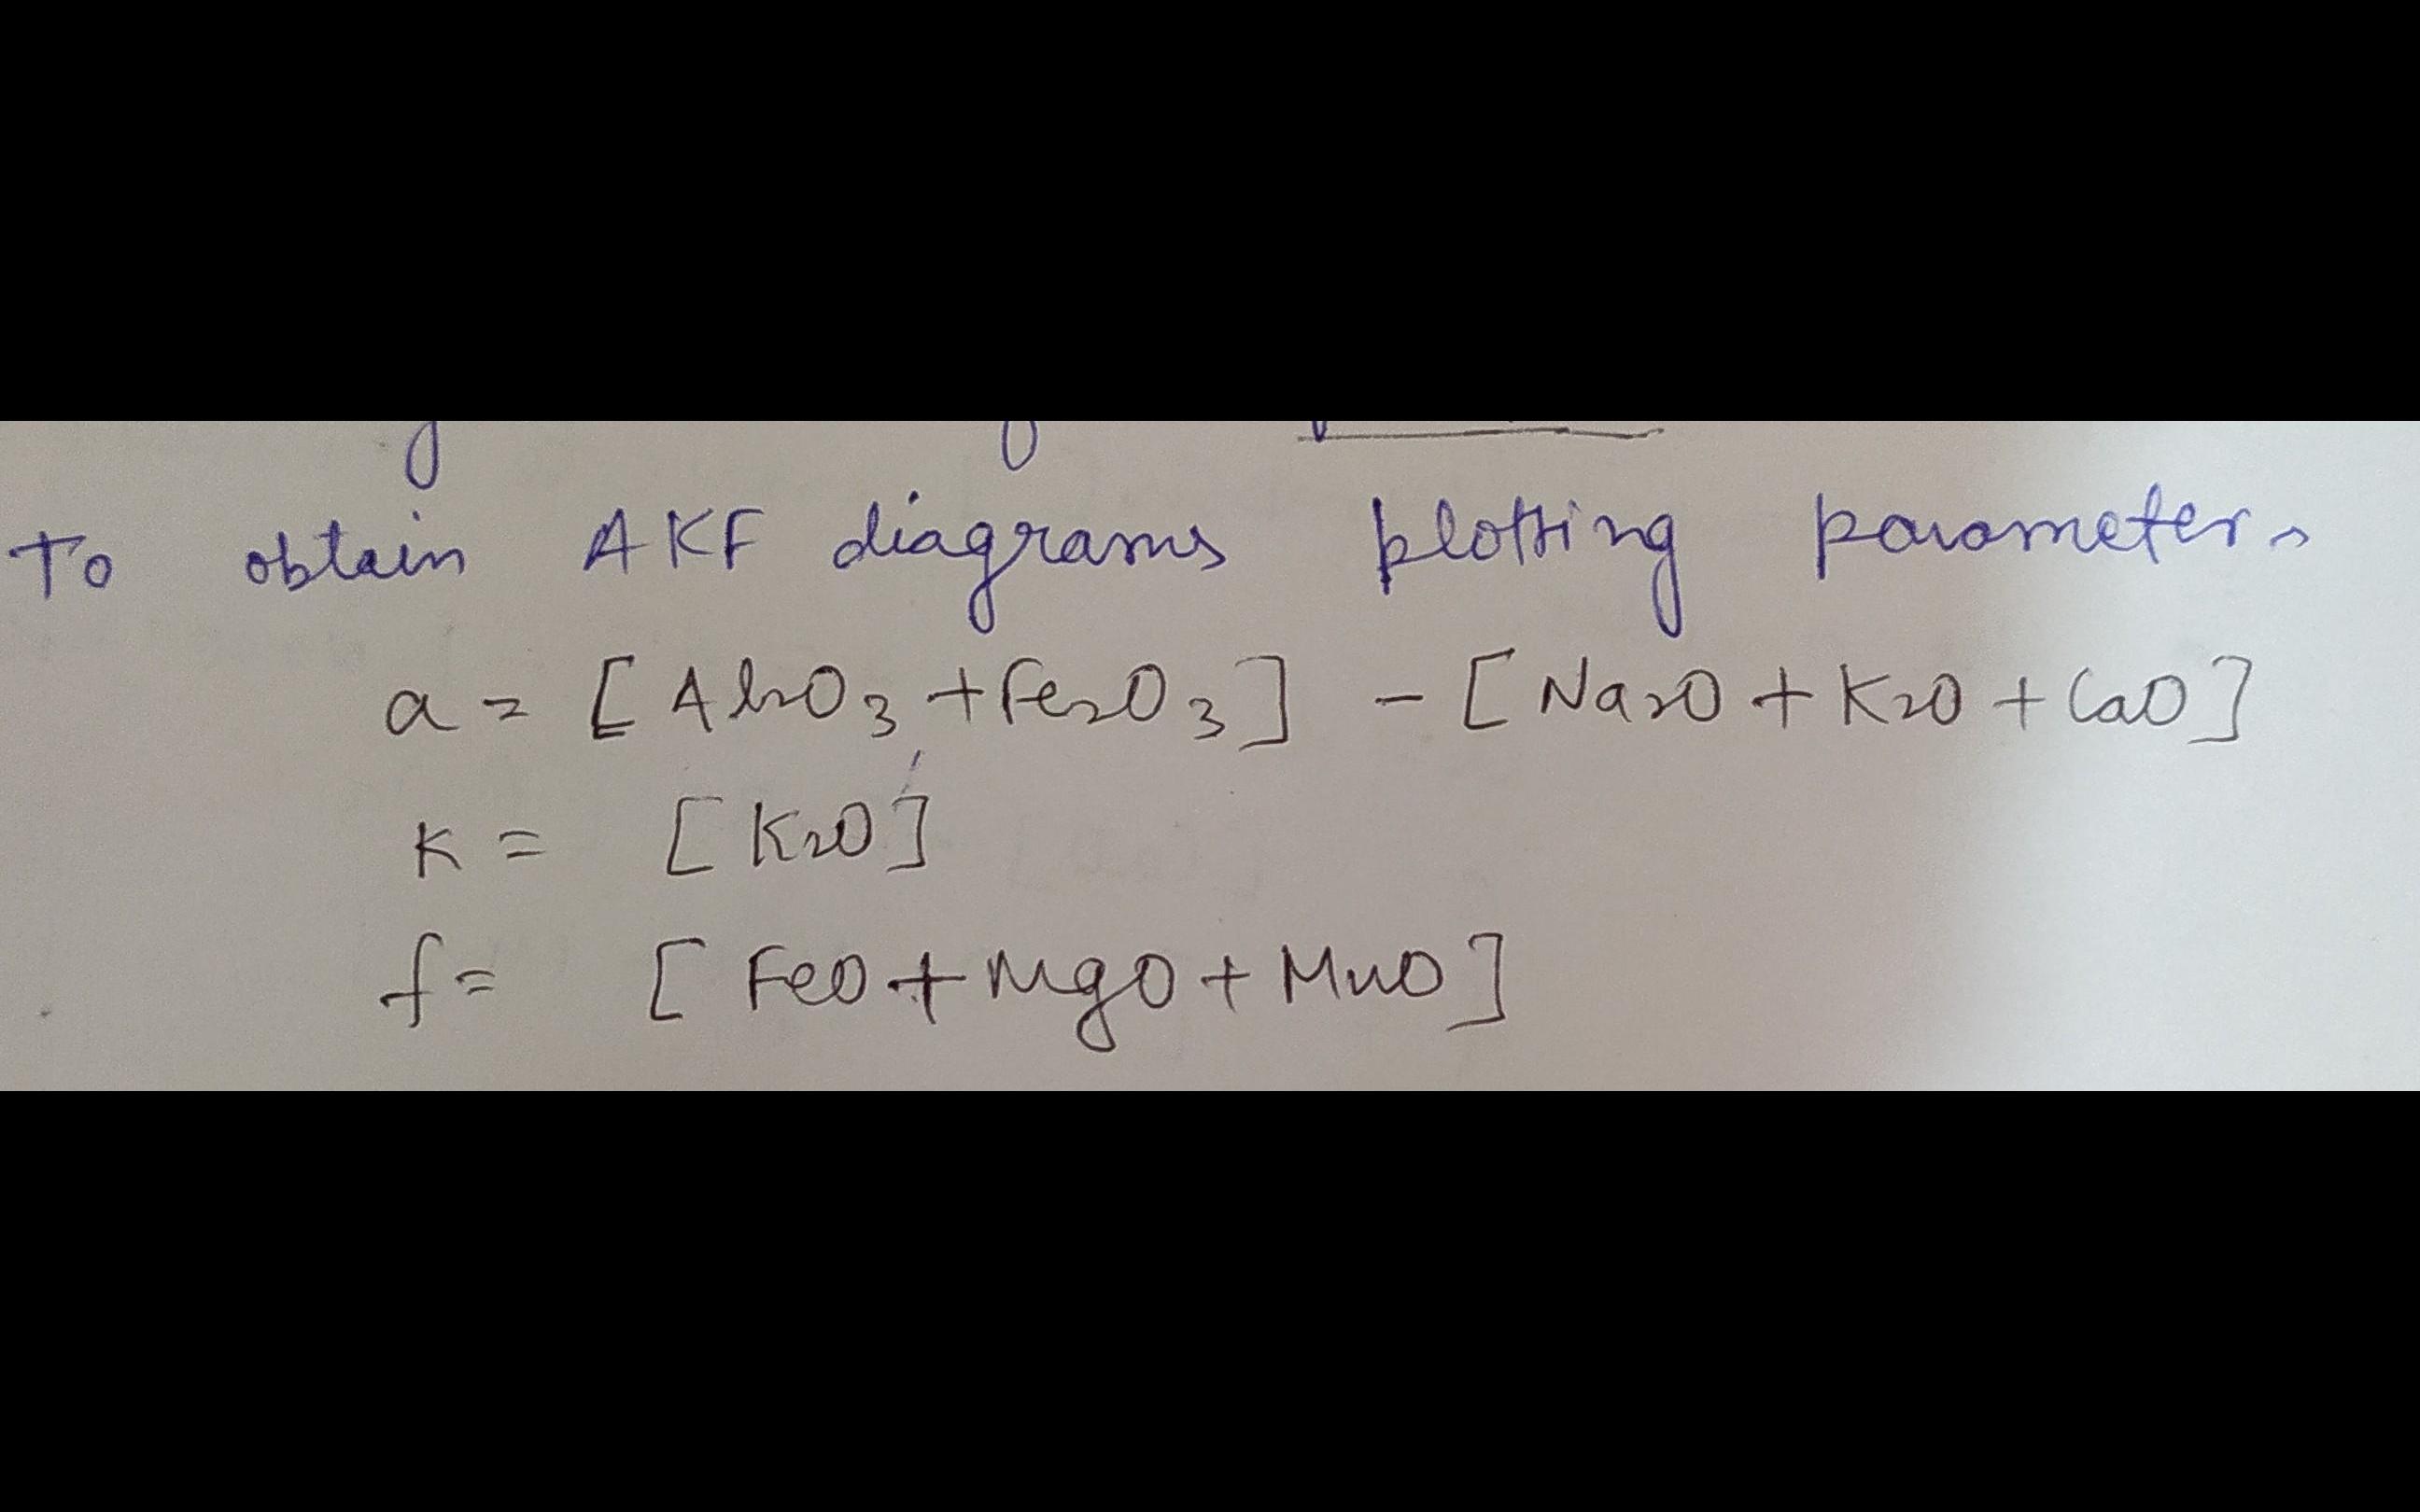 To obtain AKF diagrams plotting parameters
a = [Al₂O₃ + Fe₂O₃] - [Na₂O + K₂O + CaO]
K = [K₂O]
f = [FeO + MgO + MnO]